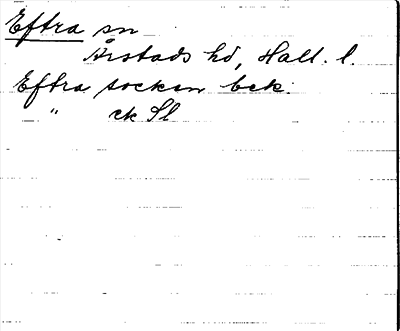 Eftra sn
Årstads hd, Hall. l.
Eftra socken bek.
" ck Sl